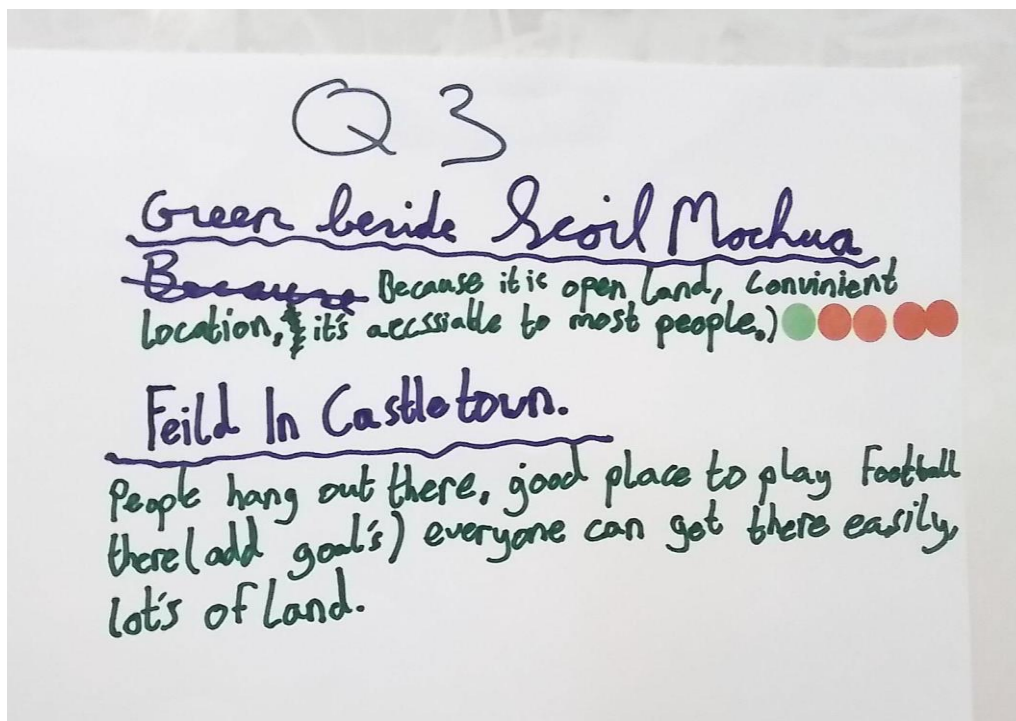 Q 3
Green beside Scoil Mochua
Because Because it is open land, Convinient
Location, & it's arcssiable to most people.)
Feild In Castletown.
People hang out there, good place to play Football
there (add goal's) everyone can get there easily,
lot's of Land.